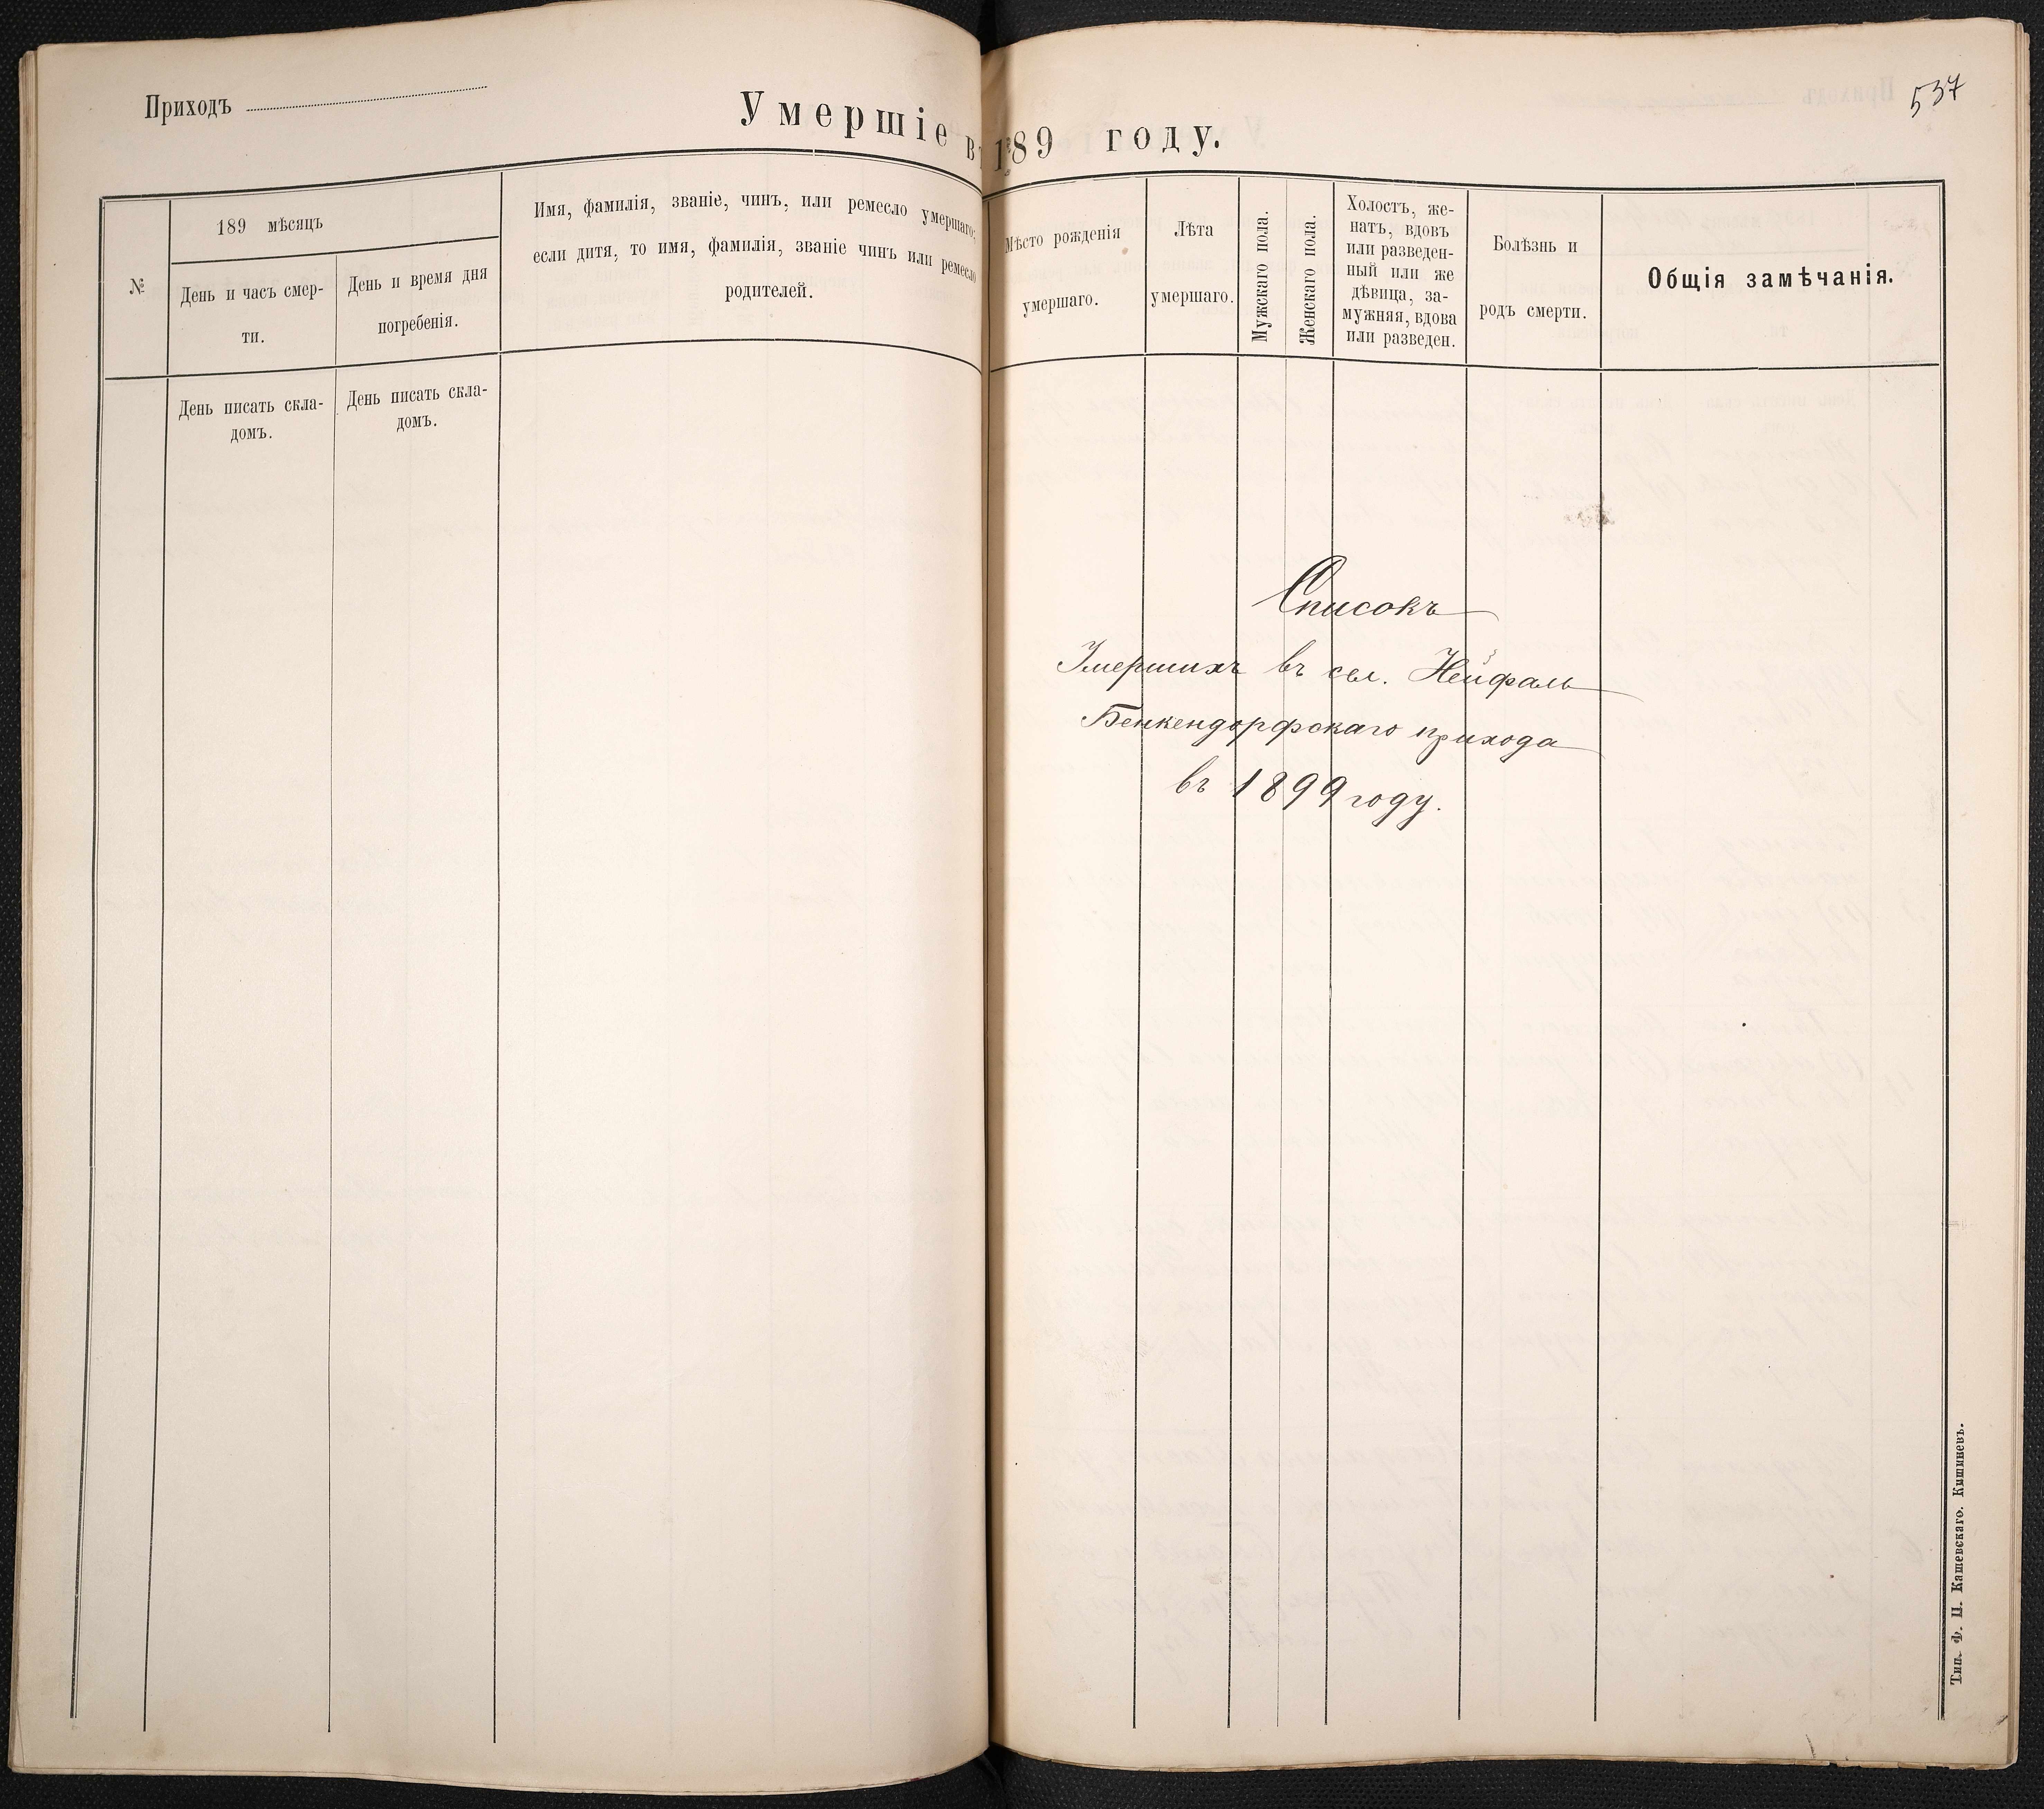 Приходъ
Умершіе въ 189 году.
537
№
189 мѣсяцъ
День и часъ смер-
ти.
День и время дня
погребенія.
Имя, фамилія, званіе, чинъ, или ремесло умершаго;
если дитя, то имя, фамилія, званіе чинъ или ремесло
родителей.
Мѣсто рожденія
умершаго.
Лѣта
умершаго.
Мужскаго пола.
Женскаго пола.
Холостъ, же-
натъ, вдовъ
или разведен-
ный или же
дѣвица, за-
мужняя, вдова
или разведен.
Болѣзнь и
родъ смерти.
Общія замѣчанія.
День писать скла-
домъ.
День писать скла-
домъ.
Списокъ
Умершихъ въ сел. Нейфаль
Бенкендорфскаго прихода
въ 1899 году.
Тип. Ф. П. Кашевскаго. Кишиневъ.